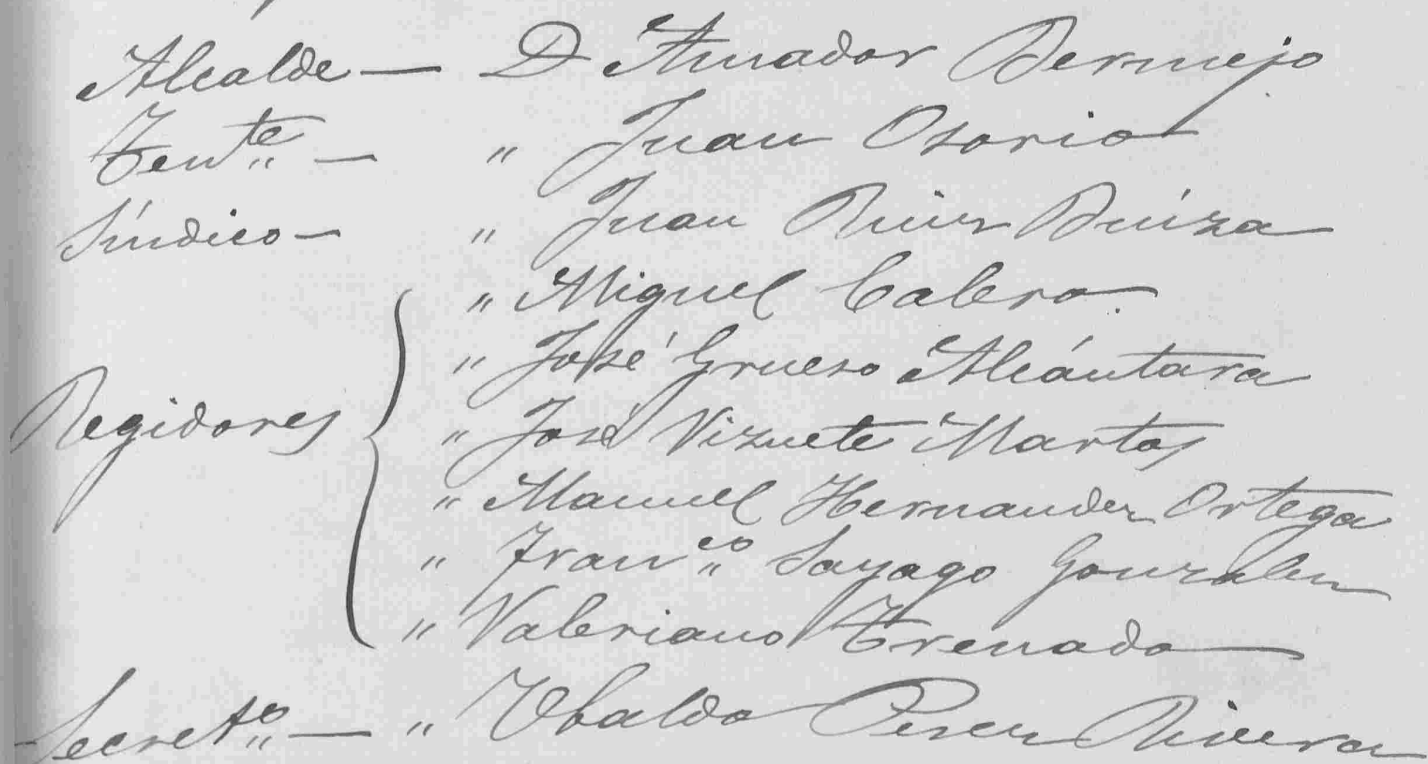 Alcalde — D Amador Bermejo
Tente — " Juan Osorio
Síndico — " Juan Ruiz Buiza
" Miguel Calero
" José Grueso Alcántara
Regidores { " José Vizuete Martos
" Manuel Hernandez Ortega
" Franco Sayago Gonzalez
" Valeriano Trenado
Secreto — " Ubaldo Perez Rivera